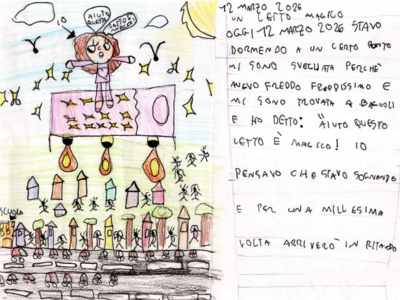 IO
AIUTO QUESTO
LETTO È MAGICO
SCUOLA
12 MARZO 2026
UN LETTO MAGICO
OGGI 12 MARZO 2026 STAVO
DORMENDO A UN CERTO PUNTO
MI SONO SVEGLIATA PERCHÈ
AVEVO FREDDO FREDDISSIMO E
MI SONO TROVATA A BAGNOLI
E HO DETTO: "AIUTO QUESTO
LETTO È MAGICO! IO
PENSAVO CHE STAVO SOGNANDO
E PER UNA MILLESIMA
VOLTA ARRIVERÒ IN RITARDO